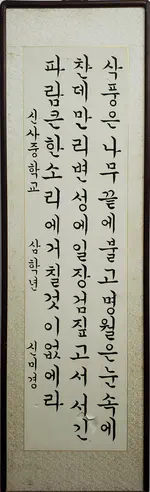 삭풍은 나무 끝에 불고 명월은 눈 속에
찬데 만리변성에 일장검 짚고 서서 긴
파람 큰 한 소리에 거칠 것이 없에라
신사중학교 삼학년 신미경